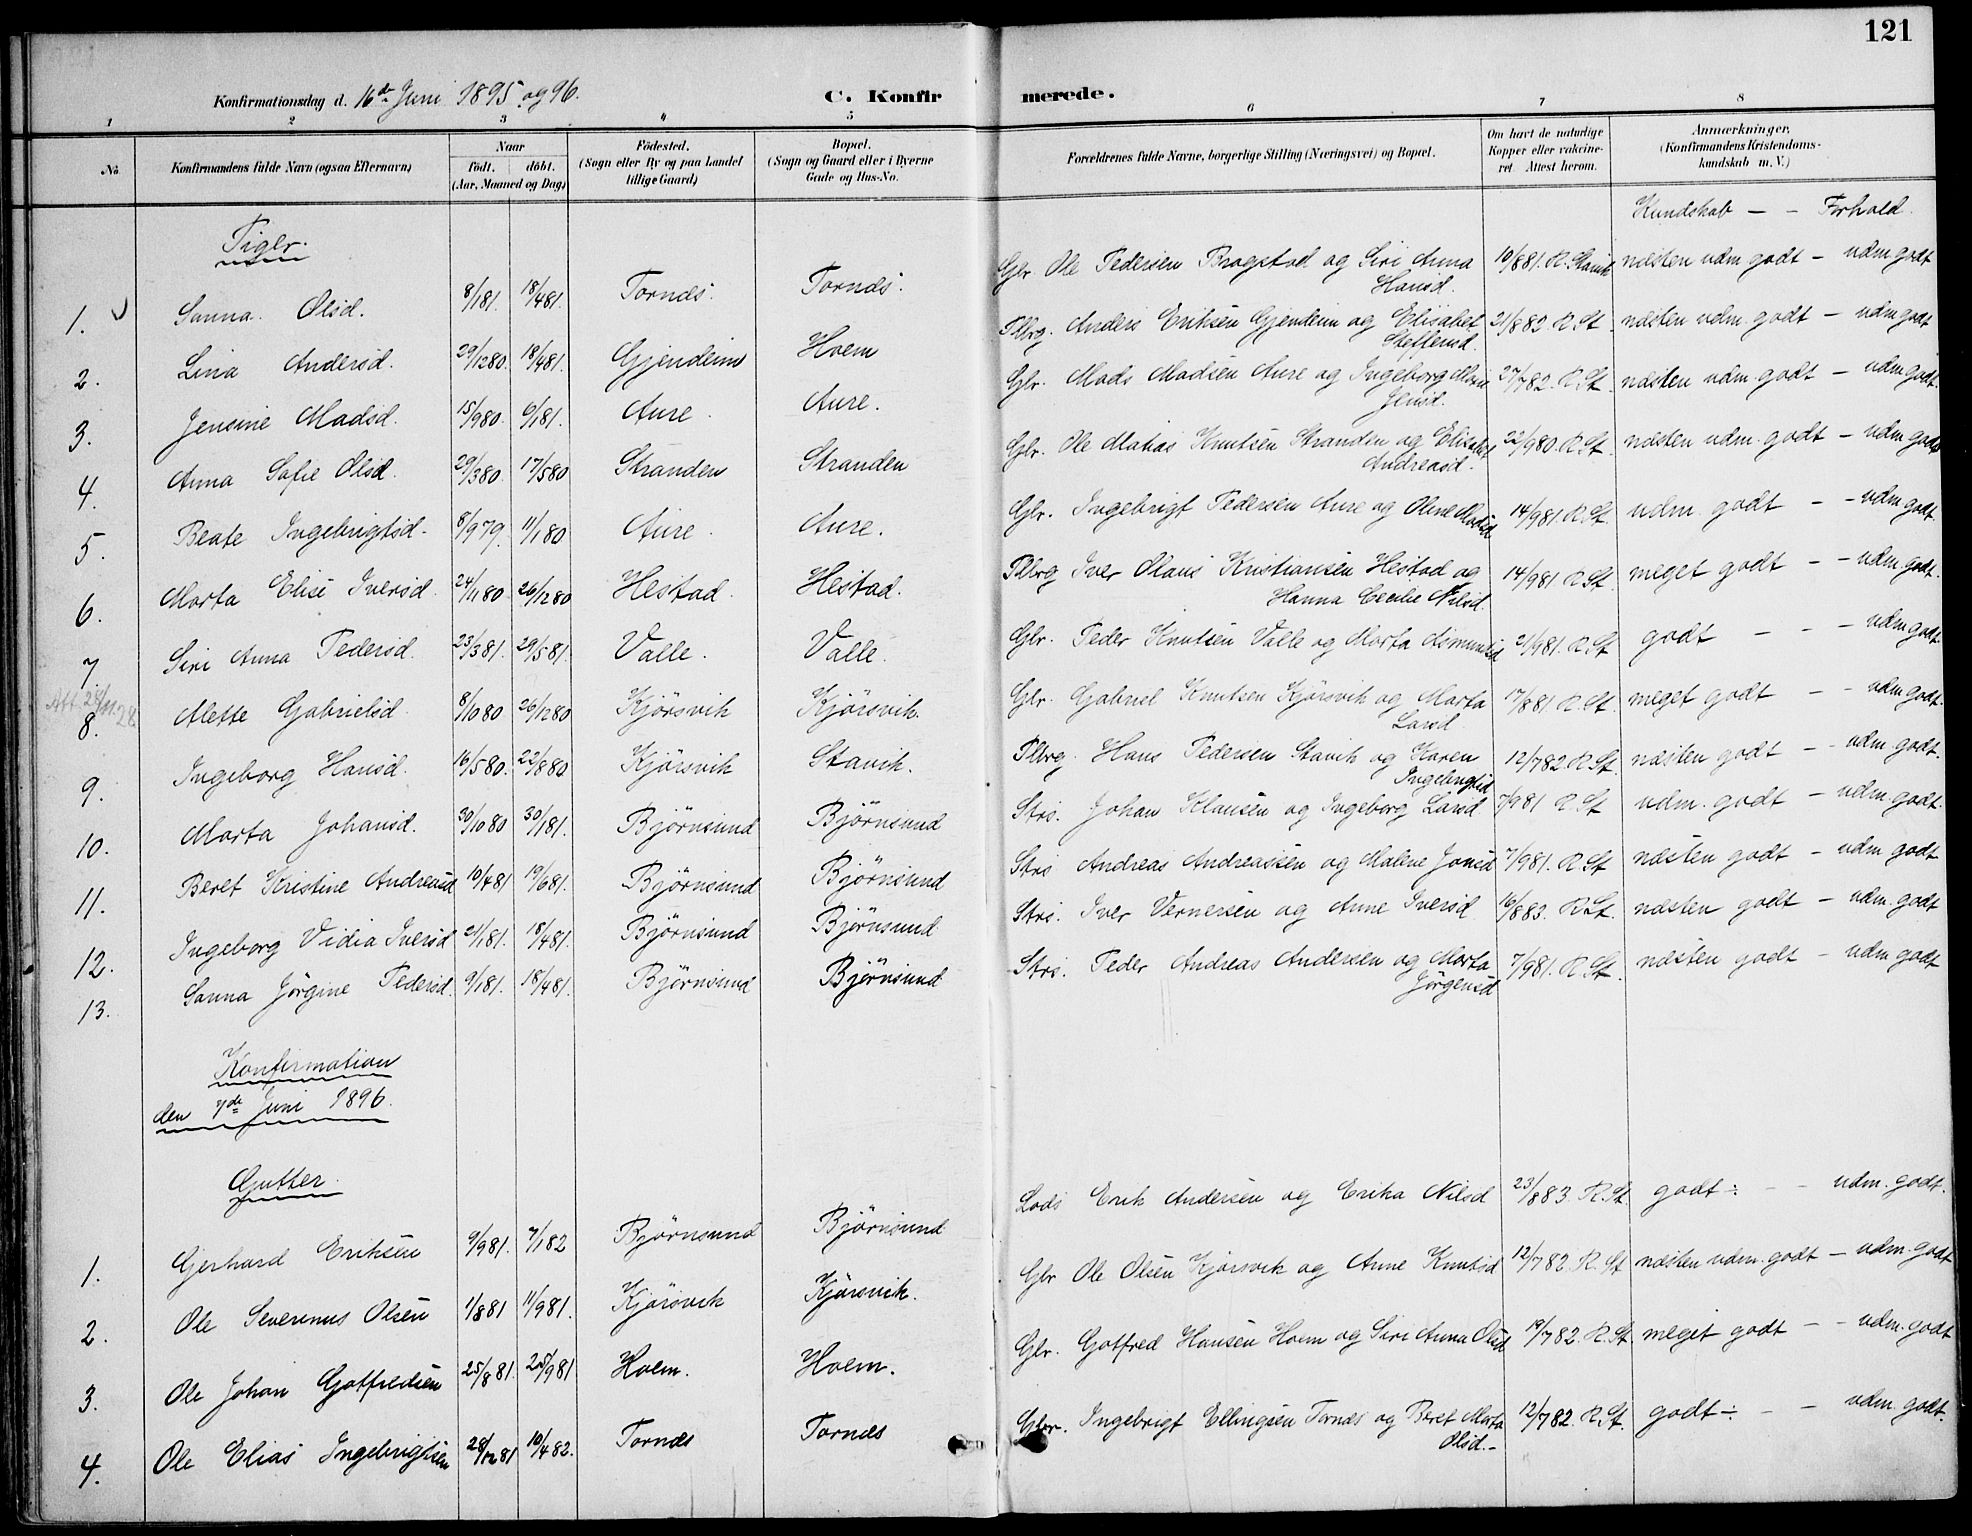 121
Konfirmationsdag d. 16de Juni 1895 og 96.
C. Konfirmerede.
1 2 3 4 5 6 7 8
No
Konfirmandens fulde Navn (ogsaa Efternavn)
Naar
født. døbt.
(Aar, Maaned og Dag)
Fødested.
(Sogn eller By og paa Landet
tillige Gaard)
Bopæl.
(Sogn og Gaard eller i Byerne
Gade og Hus-No.
Forældrenes fulde Navne, borgerlige Stilling (Næringsvei) og Bopæl.
Om havt de naturlige
Kopper eller vakcine-
ret. Attest herom.
Anmærkninger,
(Konfirmandens Kristendoms-
kundskab m. V.)
Kundskab — – Forhold.
Piger.
1. Sanna Olsd. 8/1 81. 18/4 81. Tornds. Tornds. Gbr. Ole Pedersen Brogstad og Siri Anna Hansd. 10/8 81. R. Stavik næsten udm. godt – udm. godt
2. Lina Andersd. 29/12 80. 18/4 81. Gjendeim Hoem Plbrg. Anders Eriksen Gjendeim og Elisabet Steffensd. 21/8 82 R. St. næsten udm. godt – udm. godt
3. Jensine Madsd. 15/9 80. 6/1 81. Aure. Aure. Gbr. Mads Madsen Aure og Ingeborg Marie Jensd. 27/7 82. R. St. næsten udm. godt – udm. godt.
4. Anna Sofie Olsd. 29/3 80. 17/5 80 Stranden Stranden Gbr. Ole Matias Knutsen Stranden og Elisabet Andreasd. 22/9 80. R. St. næsten udm. godt – udm. godt
5. Beate Ingebrigtsd. 8/9 79. 11/1 80 Aure. Aure. Gbr. Ingebrigt Pedersen Aure og Oline Madsd 14/9 81. R. St. udm. godt – – udm. godt.
6. Marta Elise Iversd. 24/11 80. 26/12 80 Hestad. Hestad. Plbrg Iver Olaus Kristiansen Hestad og Hanna Cecilie Nilsd. 14/9 81 R. St. meget godt – – udm. godt.
7 Siri Anna Pedersd. 23/3 81. 29/5 81. Valle. Valle. Gbr. Peder Knutsen Valle og Marta Asmundsd 21/9 81. R. St godt – – – udm. godt
Att. 28/11 28
8. Mette Gabrielsd. 8/10 80 26/12 80 Kjørsvik Kjørsvik. Gbr. Gabriel Knutsen Kjørsvik og Marta Larsd 17/8 81 R. St. meget godt – – udm. godt.
9. Ingeborg Hansd. 16/5 80. 22/8 80 Kjørsvik Stavik. Plbrg. Hans Pedersen Stavik og Karen Ingebrigtsd 12/7 82. R. St. næsten godt – – udm. godt.
10. Marta Johansd. 30/10 80 30/1 81. Bjørnsund Bjørnsund Strs. Johan Klausen og Ingeborg Larsd 7/9 81 R. St udm. godt – udm. godt.
11. Beret Kristine Andreasd 10/4 81 19/6 81. Bjørnsund Bjørnsund Strs Andreas Andreassen og Malene Jonsd 7/9 81. R. St næsten godt – udm. godt
12. Ingeborg Vidia Iversd 21/1 81. 18/4 81. Bjørnsund Bjørnsund Strs. Iver Vernersen og Anne Iversd 16/8 83. R. St. næsten godt – udm. godt
13. Sanna Jørgine Pedersd. 9/1 81. 18/4 81. Bjørnsund Bjørnsund Strs. Peder Andreas Andersen og Marta Jørgensd 7/9 81. R. St. næsten godt – udm. godt
Konfirmation
den 7de Juni 1896.
Gutter.
1. Gerhard Eriksen 9/9 81. 7/1 82 Bjørnsund Bjørnsund Lods Erik Andersen og Erika Nilsd 23/8 83. R. St. godt ÷ – – udm. godt.
2. Ole Severinus Olsen 1/8 81 11/9 81. Kjørsvik Kjørsvik. Gbr Ole Olsen Kjørsvik og Anne Knutsd 12/7 82. R. St næsten udm. godt – udm. godt
3. Ole Johan Gotfredsen 25/8 81. 25/9 81 Hoem. Hoem. Gbr. Gotfred Hansen Hoem og Siri Anna Olsd 19/7 82. R. St. meget godt – – udm. godt
4. Ole Elias Ingebrigtsen 28/12 81 10/4 82. Tornds Tornds Gbr. Ingebrigt Ellingsen Tornds og Beret Marta Olsd. 12/7 82. R. St. godt ÷ – – udm. godt.